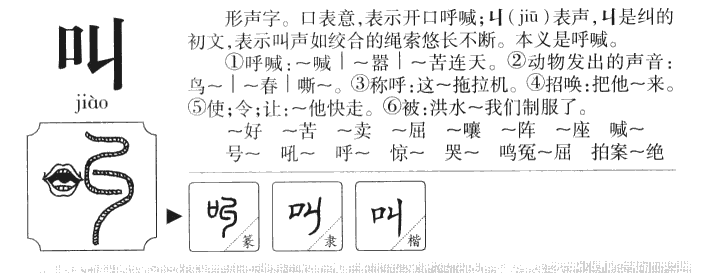 叫
jiào
形声字。口表意,表示开口呼喊;丩(jiū)表声,丩是纠的
初文,表示叫声如绞合的绳索悠长不断。本义是呼喊。
①呼喊:~喊|~嚣|~苦连天。②动物发出的声音:
鸟~|~春|嘶~。③称呼:这~拖拉机。④招唤:把他~来。
⑤使;令;让:~他快走。⑥被:洪水~我们制服了。
~好 ~苦 ~卖 ~屈 ~嚷 ~阵 ~座 喊~
号~ 吼~ 呼~ 惊~ 哭~ 鸣冤~屈 拍案~绝
叫 篆 叫 隶 叫 楷